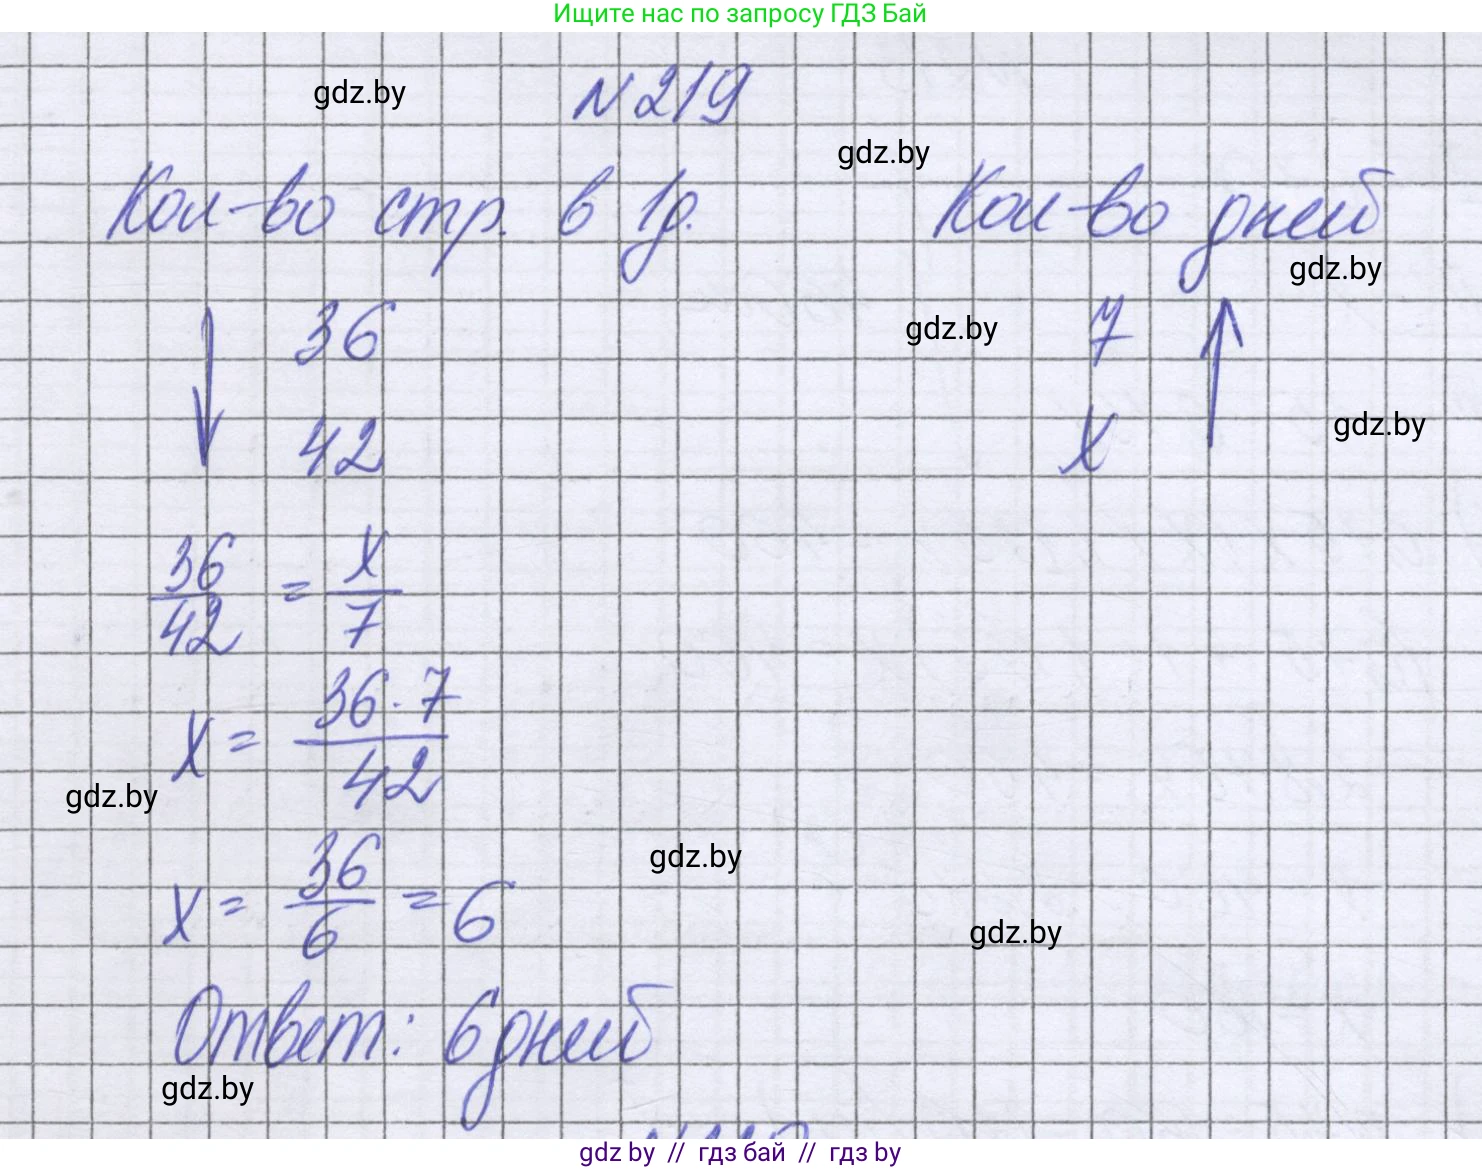 Ищите нас по запросу ГДЗ Бай
N219
gdz.by
gdz.by
Кол-во стр. в 1д. Кол-во дней
gdz.by
36 7
gdz.by
42 x
gdz.by
36/42 = x/7
x = 36·7/42
gdz.by
gdz.by
x = 36/6 = 6
gdz.by
Ответ: 6 дней
gdz.by
gdz by // гдз бай // гдз by